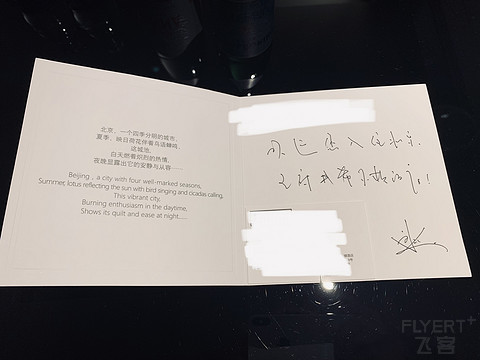 北京，一个四季分明的城市，
夏季，映日荷花伴着鸟语蝉鸣，
这城池，
白天燃着炽烈的热情，
夜晚显露出它的安静与从容……
Beijing , a city with four well-marked seasons,
Summer, lotus reflecting the sun with bird singing and cicadas calling,
This vibrant city,
Burning enthusiasm in the daytime,
Shows its quilt and ease at night......
欢迎您入住北京
FLYERT+
飞客